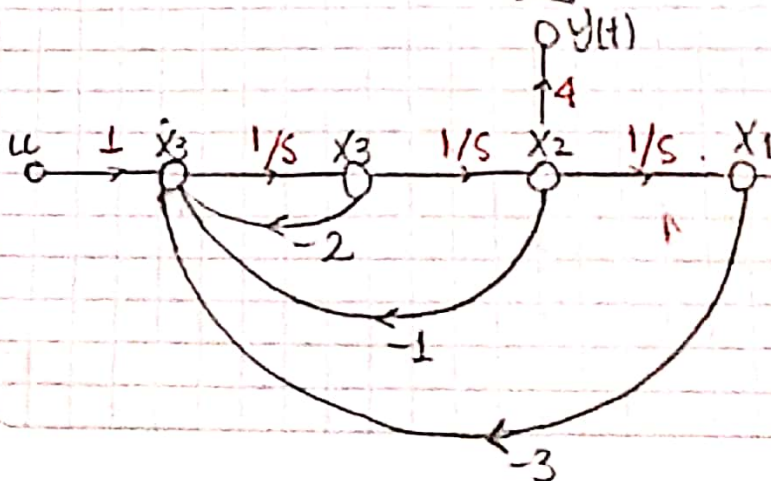 y(t)
4
u 1 ẋ3 1/s x3 1/s x2 1/s x1
-2
-1
-3